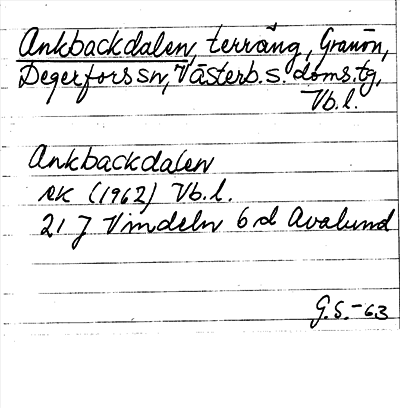 Ankbackdalen, terräng, Granön,
Degerfors sn, Västerb.s. doms.tg,
Vb.l.
Ankbackdalen
EK (1962) Vb.l.
21 J Vindeln 6 d Avalund
G.S.-63